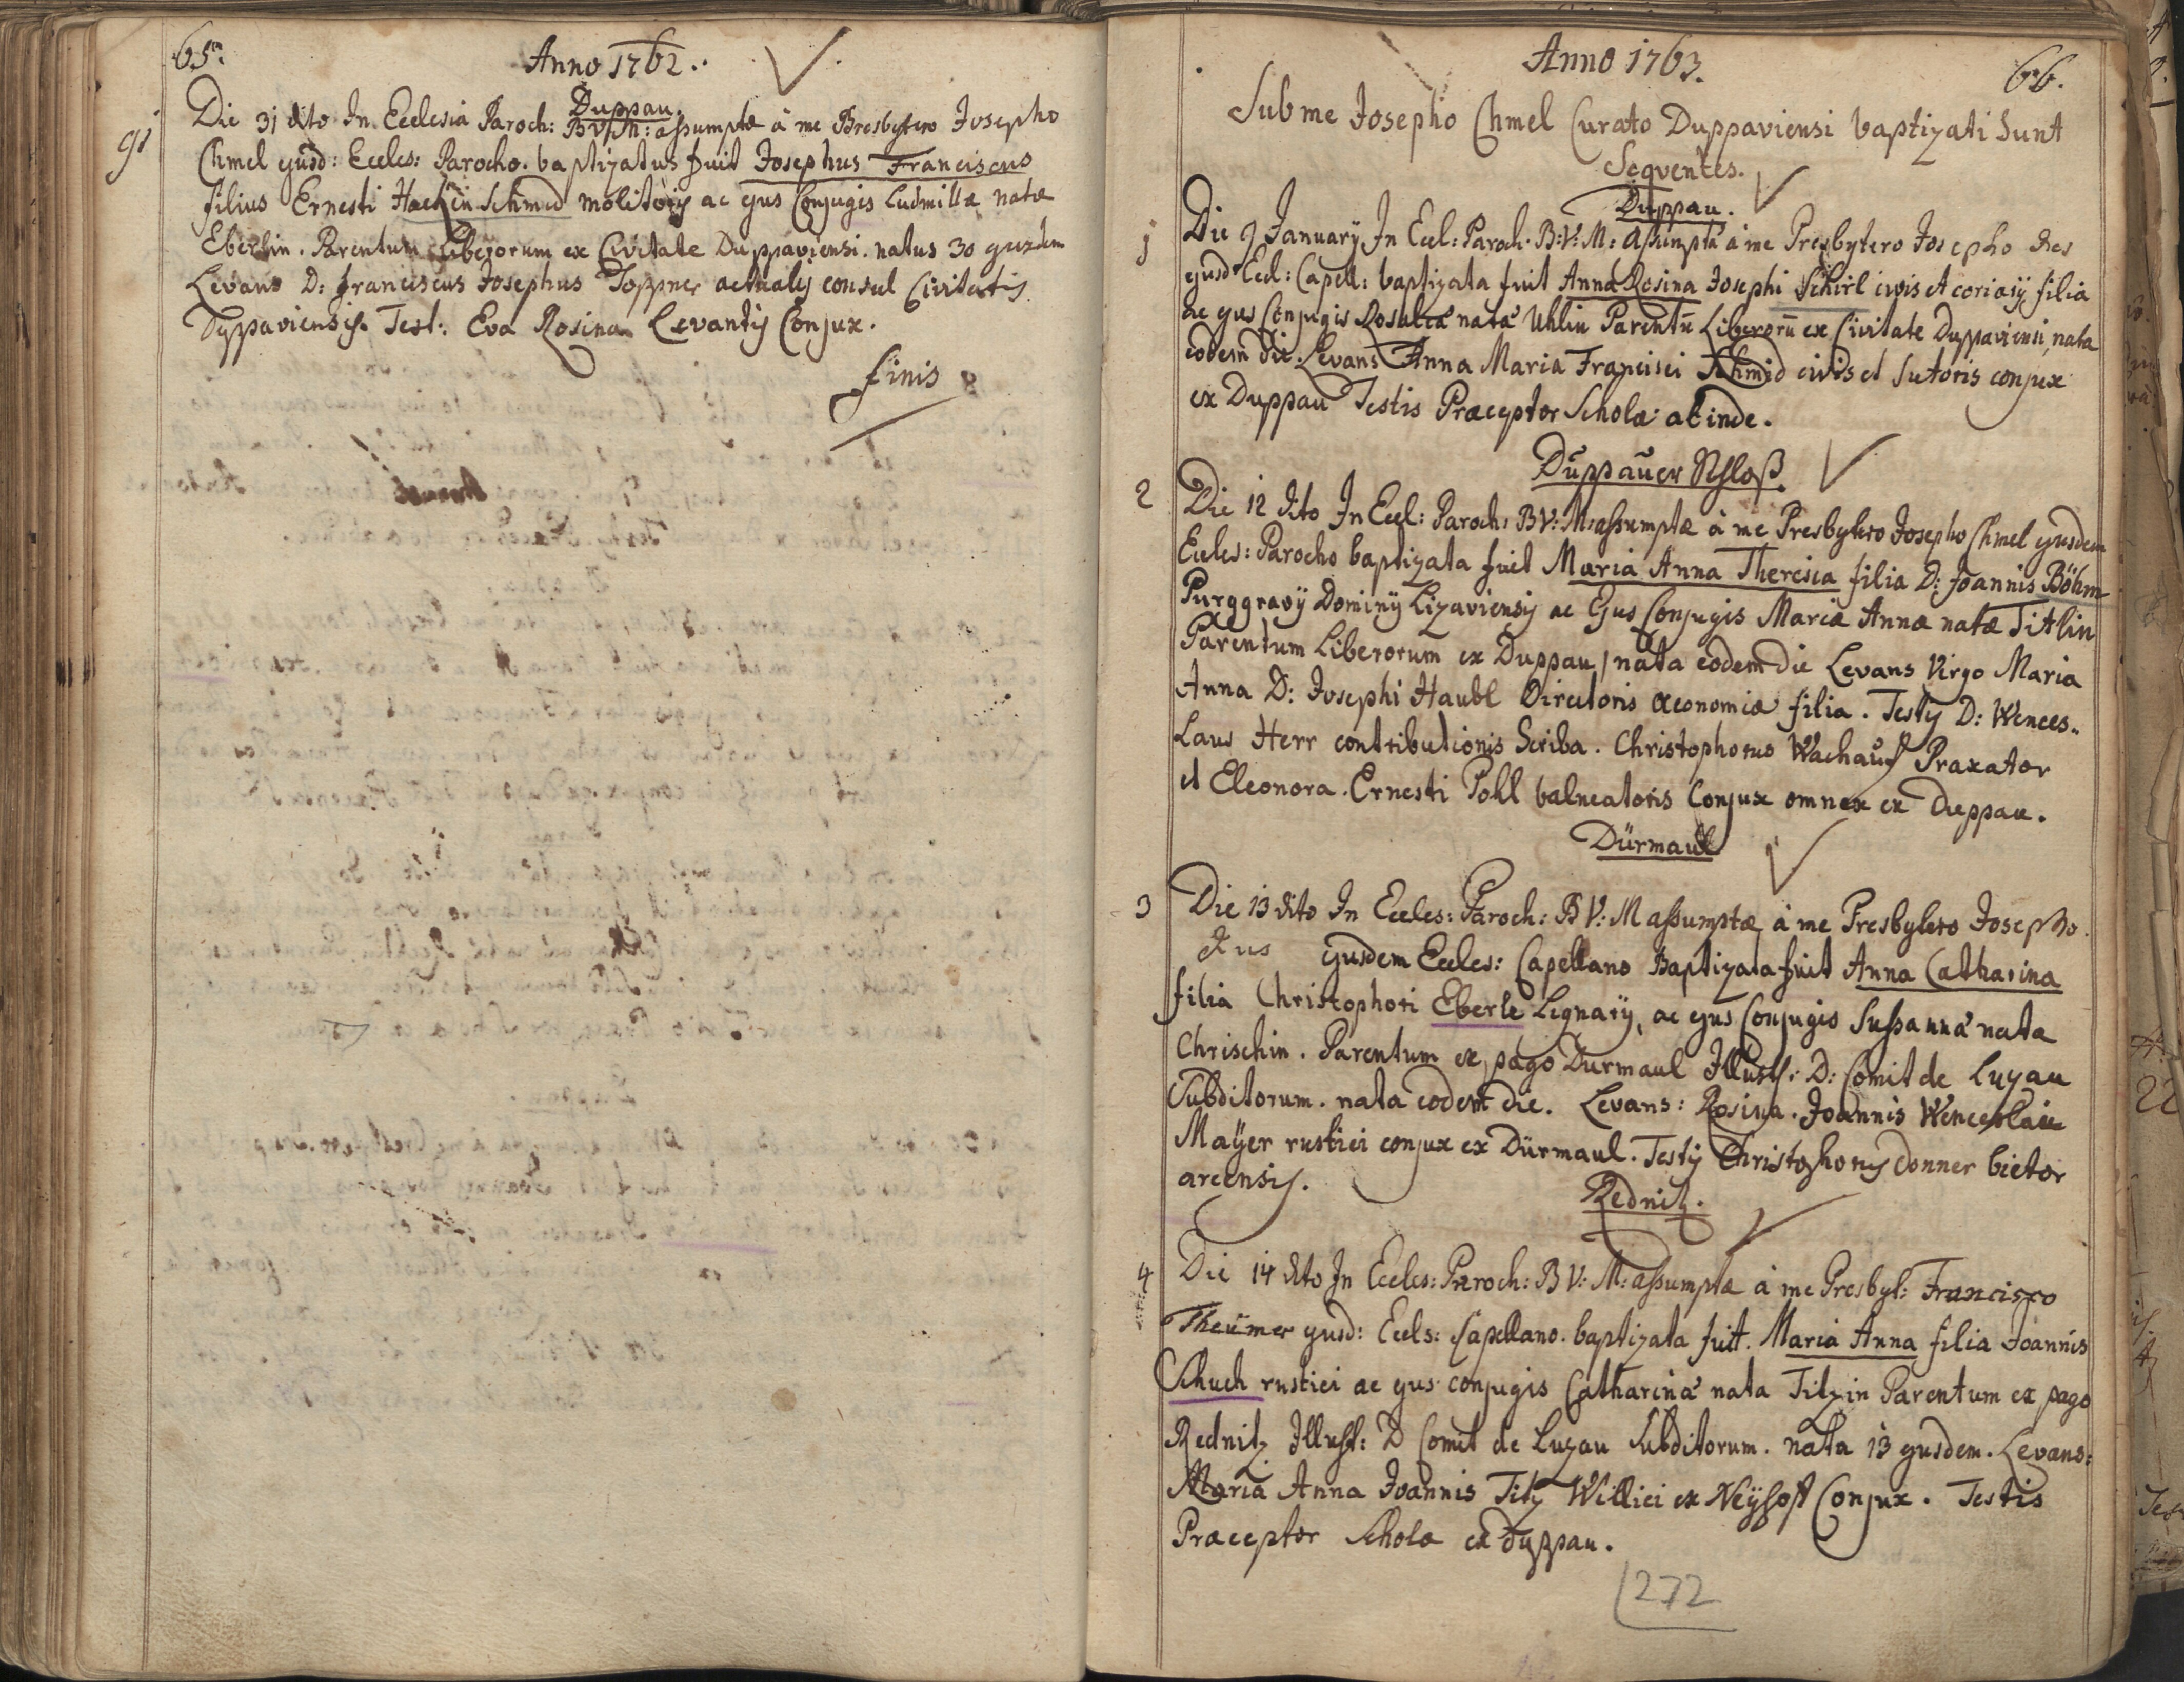 65.
Anno 1762.
Duppau.
91
Die 31 dito In Ecclesia Paroch: B V M: assumptæ à me Presbytero Josepho
Chmel ejusd: Eccles: Parocho. baptizatus fuit Josephus Franciscus
filius Ernesti Schmid molitoris ac ejus Conjugis Ludmillæ natæ
Eberlin. Parentum Liberorum ex Civitate Duppaviensi. natus 30 ejusdem
Levans D: Franciscus Josephus Toppner actualis consul Civitatis
Duppaviensis. Test: Eva Rosina Levantis Conjux.
finis
Anno 1763.
66.
Sub me Josepho Chmel Curato Duppaviensi baptizati sunt
Seqventes.
Duppau.
1
Die 9 January In Eccl: Paroch: B: V: M: Assumptæ à me Presbytero Josepho Res
ejusd Eccl: Capell: baptizata fuit Anna Rosina Josephi Schirl civis et coriarÿ filia
ac ejus Conjugis Rosalia nata Uhlin Parentū Liberorū ex Civitate Duppaviensi, nata
eodem die. Levans Anna Maria Francisci Schmid civis et Sutoris conjux
ex Duppau Testis Præceptor Scholæ ab inde.
Duppauer Schloß.
2
Die 12 dito In Eccl: Paroch: B V: M: assumptæ à me Presbytero Josepho Chmel ejusdem
Eccles: Parocho baptizata fuit Maria Anna Theresia filia D: Joannis Böhm
Purggravÿ Dominÿ Lizaviensis ac Ejus Conjugis Mariæ Annæ natæ Titlin
Parentum Liberorum ex Duppau, nata eodem die Levans Virgo Maria
Anna D: Josephi Haubl Directoris œconomiæ filia. Testis D: Wences„
Laus Herr contributionis Scriba. Christophorus Praxator
et Eleonora Ernesti Pohl balneatoris Conjux omnes ex Duppau.
Dürmaul
3
Die 13 dito In Eccles: Paroch: B V: M assumptæ à me Presbytero Josepho
Rus ejusdem Eccles: Capellano Baptizata fuit Anna Catharina
filia Christophori Eberle Lignarÿ, ac ejus Conjugis Sussanna nata
Chrischin. Parentum ex pago Durmaul Illust: D: Comit de Luzau
Subditorum. nata eodem die. Levans: Rosina. Joannis Wenceslai
Maÿer rustici conjux ex Dürmaul. Testis Christophorus Donner bictor
arcensis.
Rednitz.
4
Die 14 dito In Eccles: Paroch: B V: M: assumptæ à me Presbyt: Francisco
Theümer ejusd: Eccls: Capellano. baptizata fuit. Maria Anna filia Joannis
Schuch rustici ac ejus conjugis Catharina nata Titzin Parentum ex pago
Rednitz Illust: D Comit de Luzau Subditorum. nata 13 ejusdem. Levans:
Maria Anna Joannis Titz Willici ex Neÿhoff Conjux. Testis
Præceptor Schola ex Duppau.
272